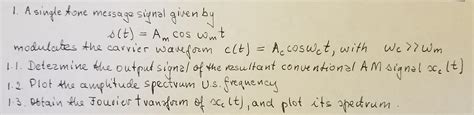 1. A single tone message signal given by
s(t) = Am cos ωmt
modulates the carrier waveform c(t) = Ac cosωct, with ωc >> ωm
1.1. Determine the output signal of the resultant conventional AM signal xc(t)
1.2. Plot the amplitude spectrum v.s. frequency
1.3. Obtain the Fourier transform of xc(t), and plot its spectrum.